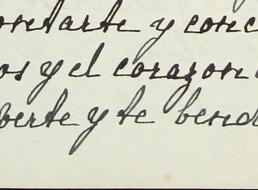 ontarte y conc
os y el corazon
berte y te bend